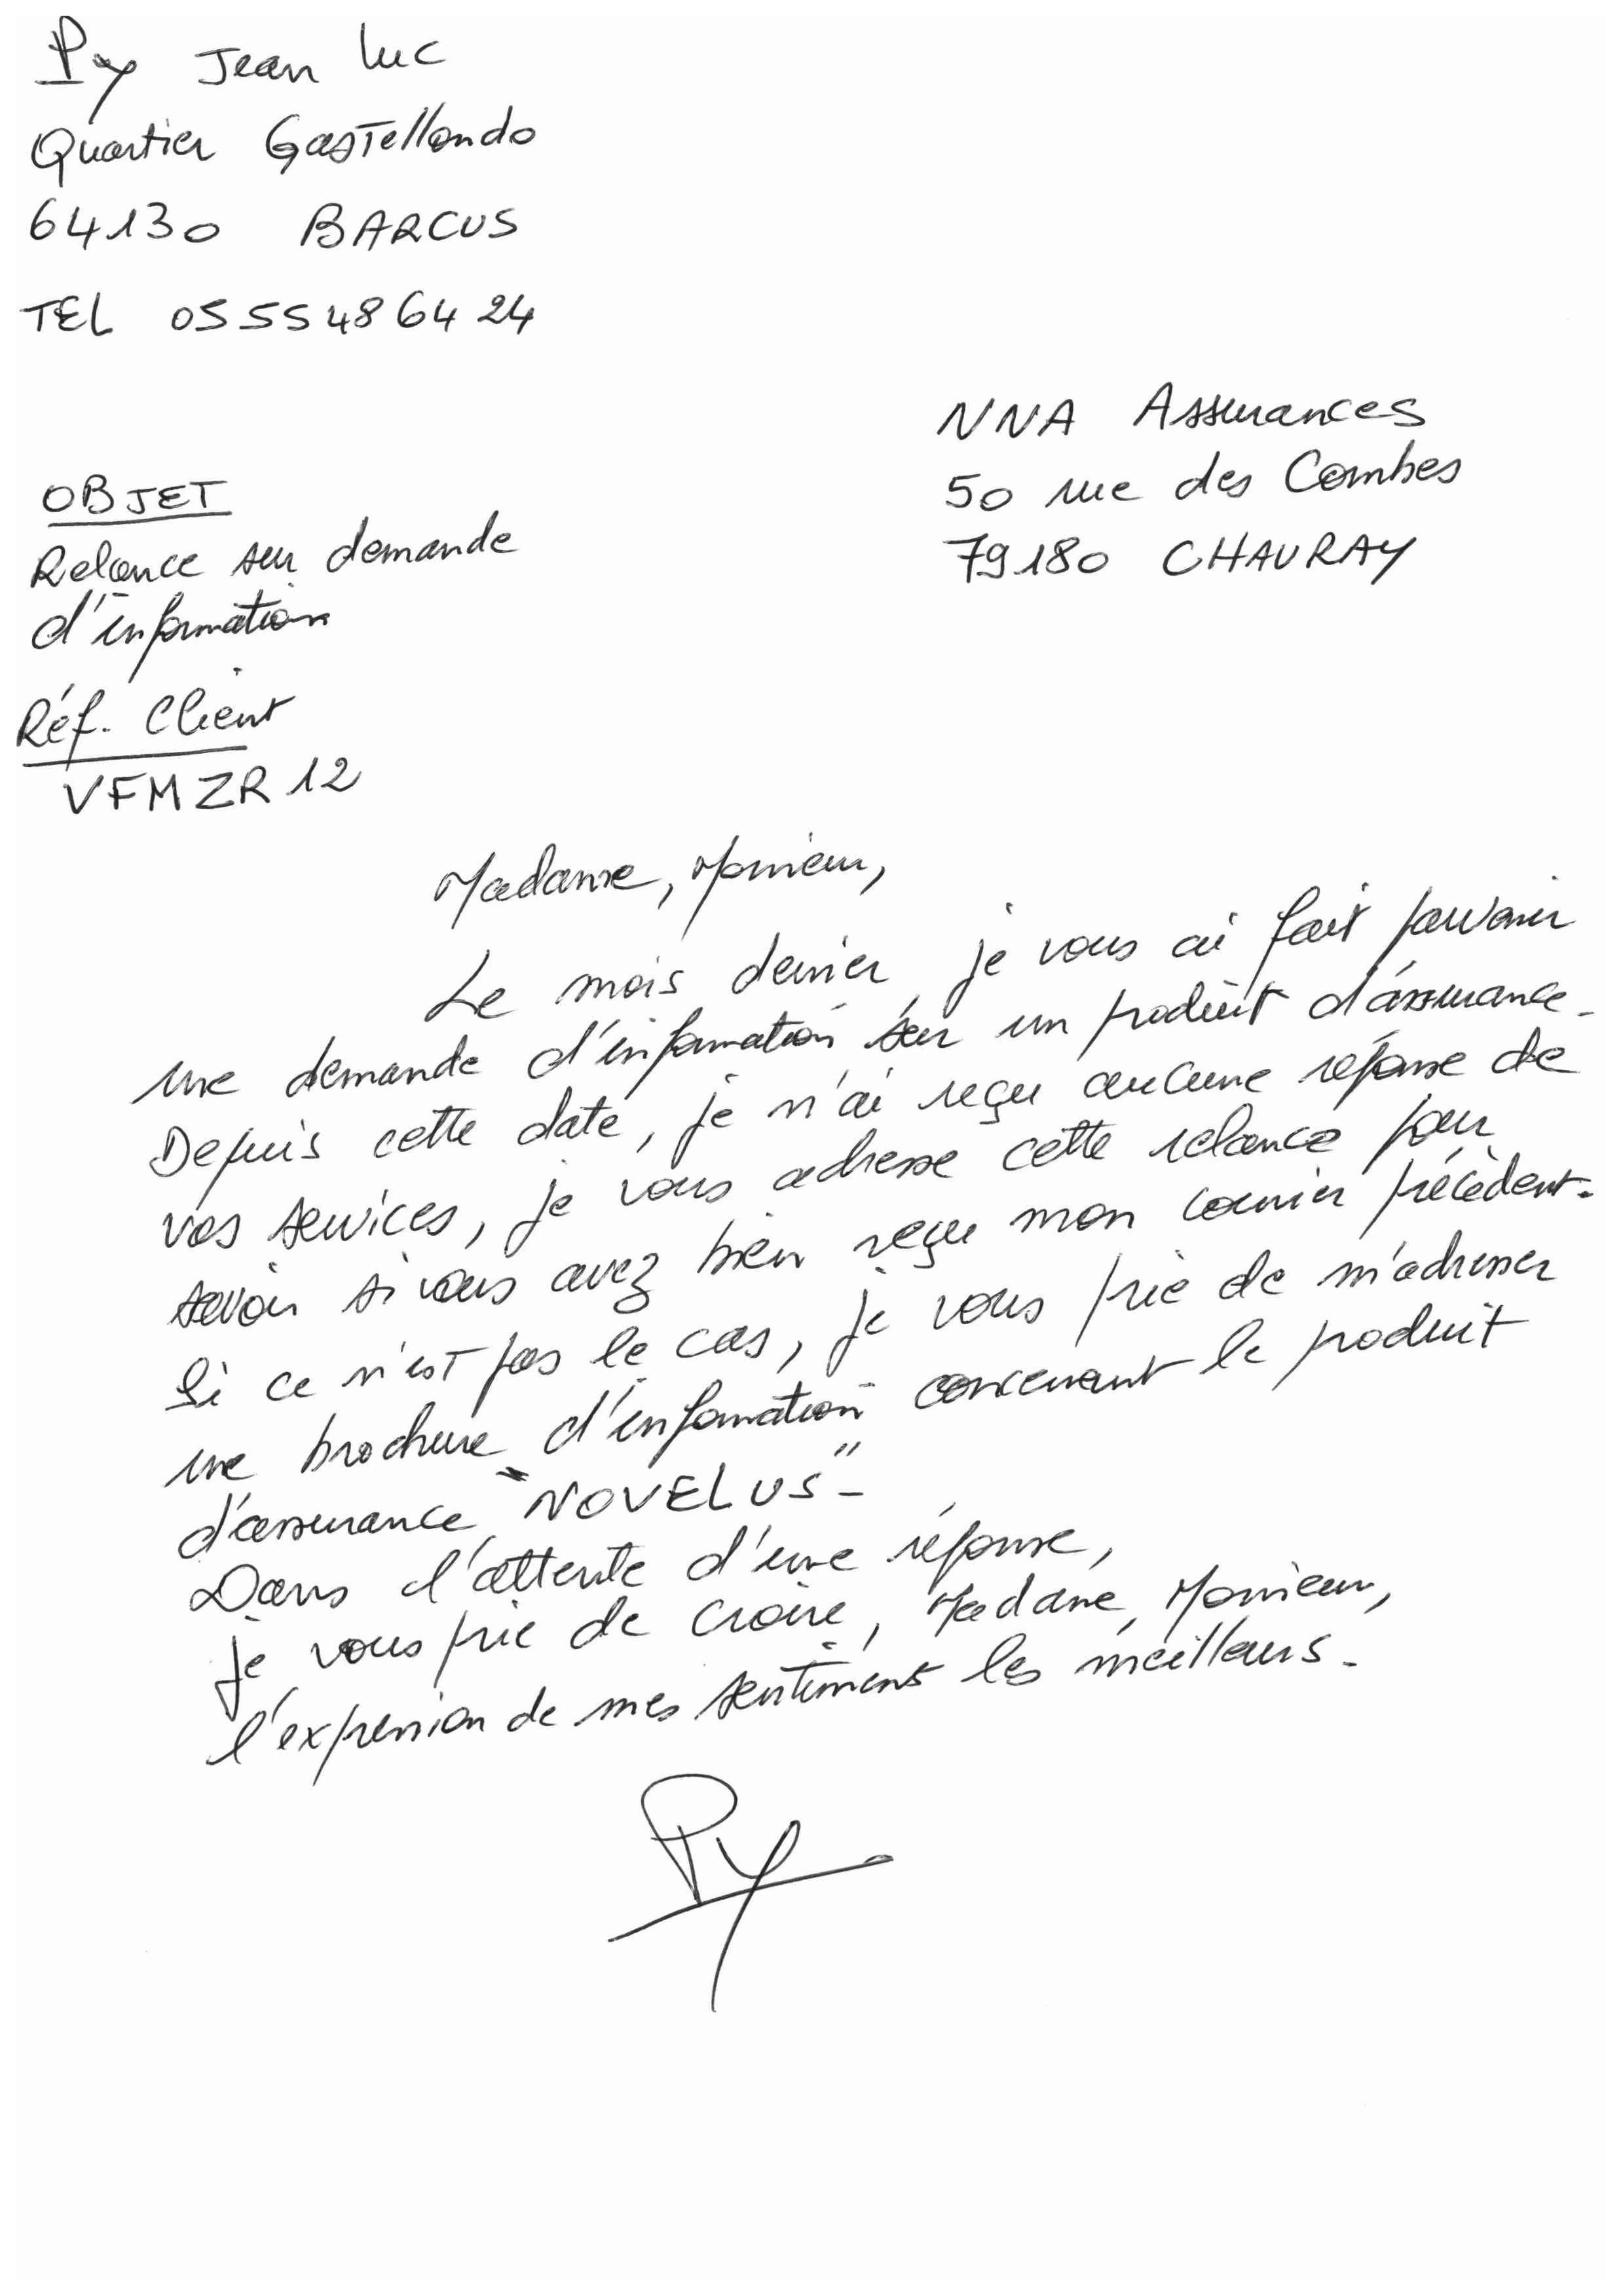 Py Jean Luc
Quartier Gastellondo
64130 BARCUS
TEL 05 55 48 64 24
NNA Assurances
50 rue des Combes
79180 CHAURAY
OBJET
Relance sur demande
d'information
Réf. Client
VFMZR12
Madame, Monsieur,
Le mois dernier, je vous ai fait parvenir
une demande d'information sur un produit d'assurance.
Depuis cette date, je n'ai reçu aucune réponse de
vos services, je vous adresse cette relance pour
savoir si vous avez bien reçu mon courrier précédent.
Si ce n'est pas le cas, je vous prie de m'adresser
une brochure d'information concernant le produit
d'assurance "NOVELUS".
Dans l'attente d'une réponse,
je vous prie de croire, Madame, Monsieur,
l'expression de mes sentiments les meilleurs.
Py